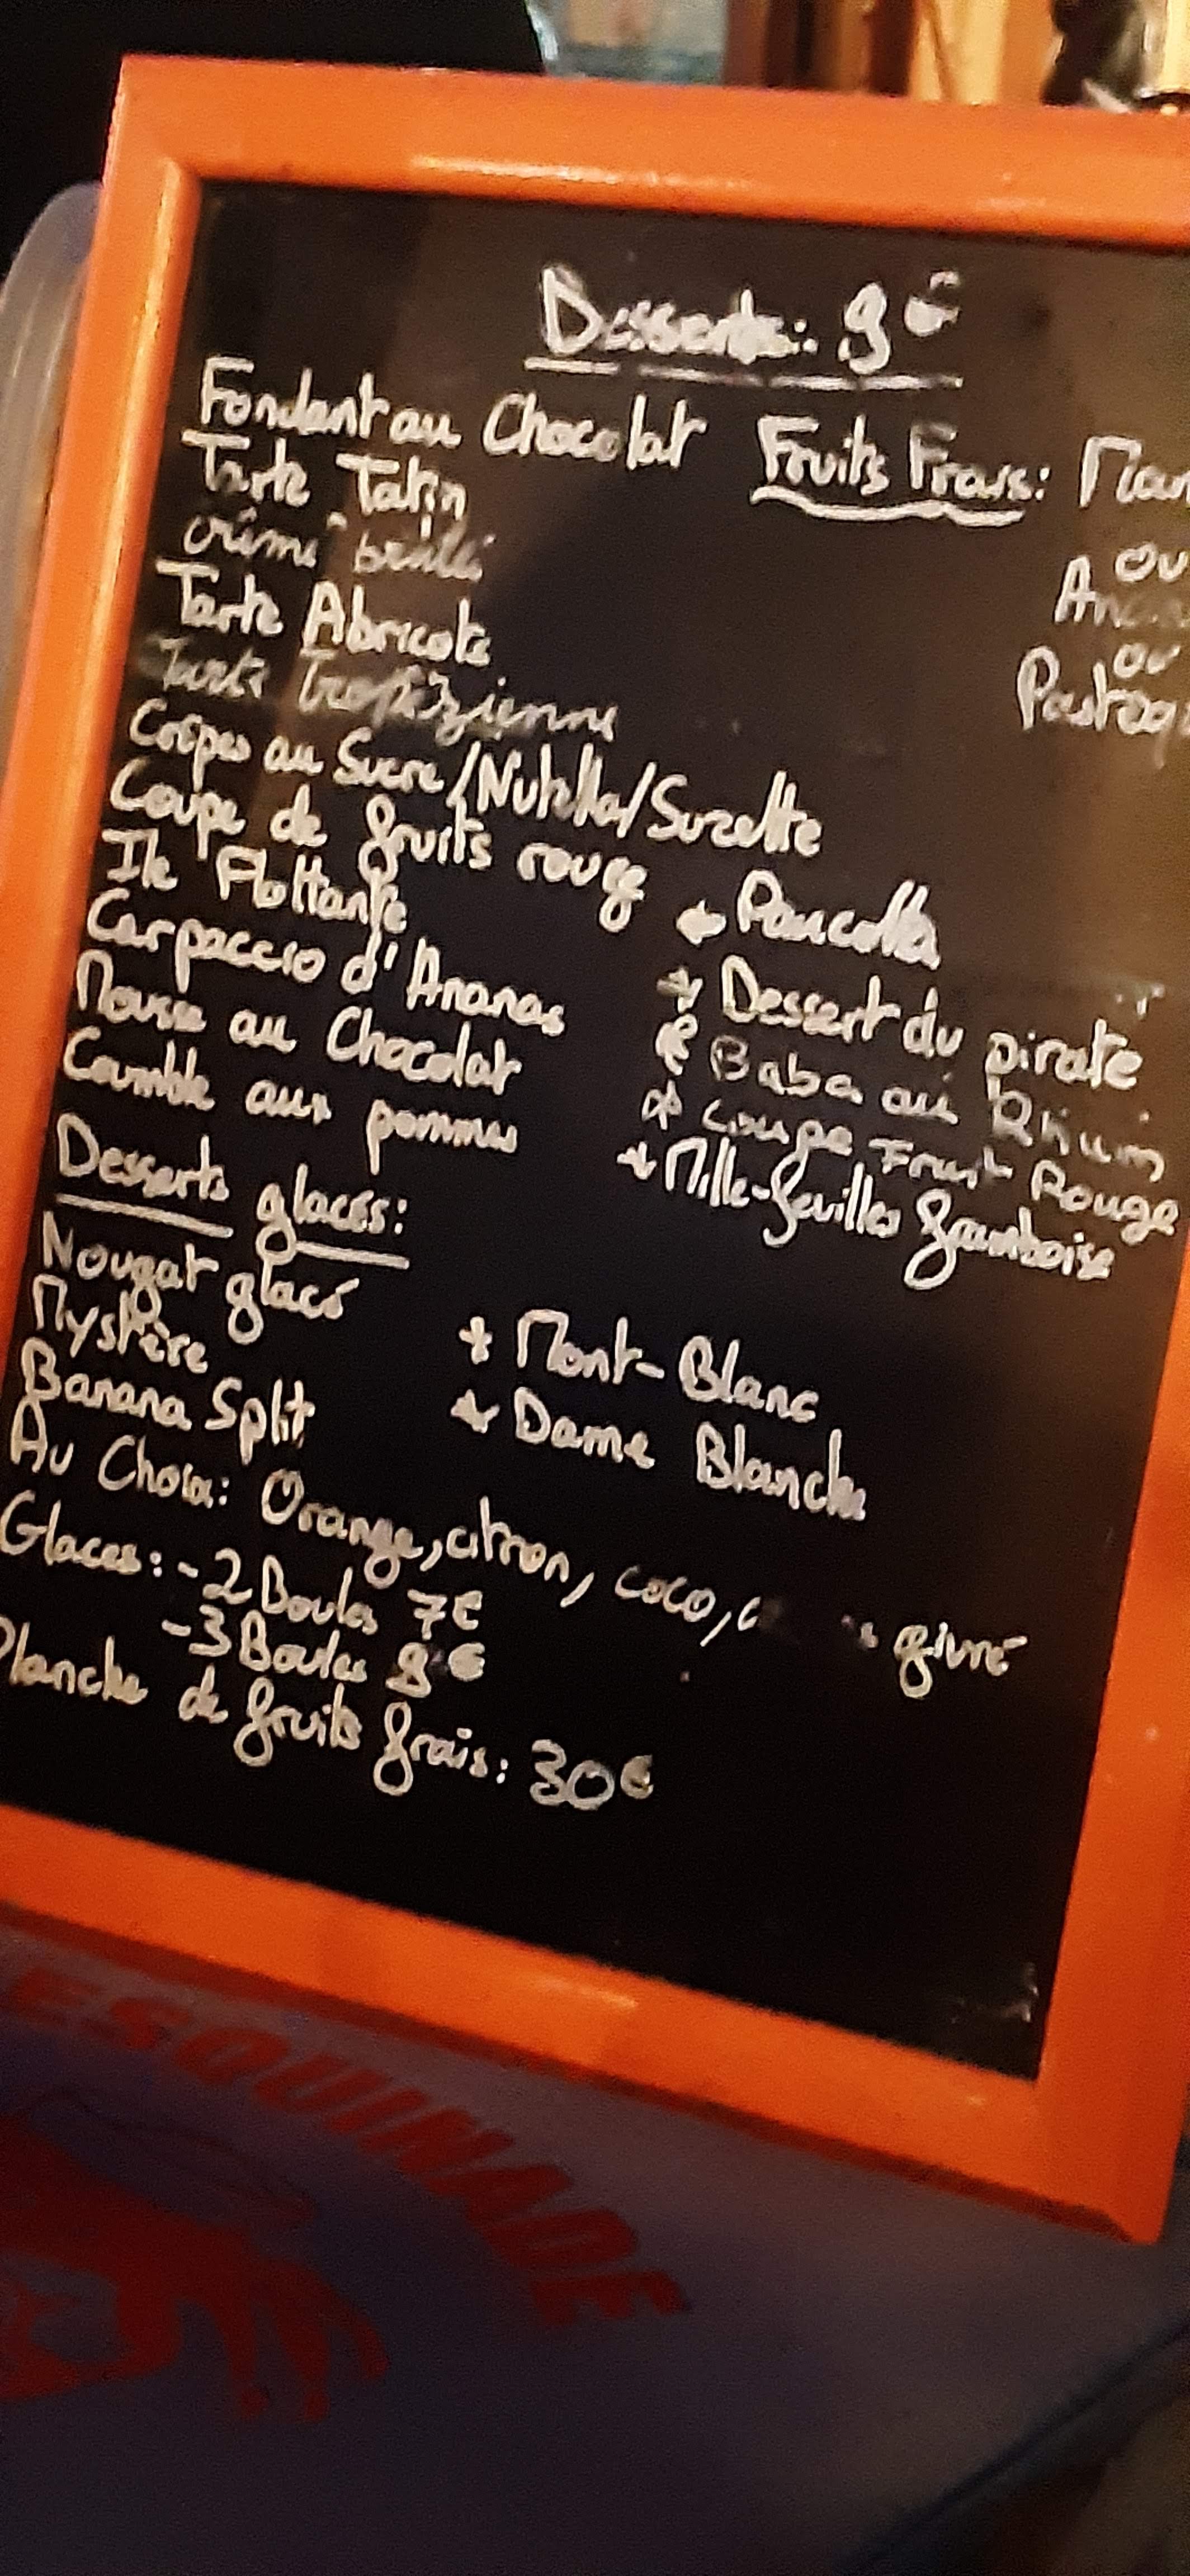 Desserts: 9€
Fondant au Chocolat
Tarte Tatin
crème brûlée
Tarte Abricots
Tarte tropézienne
Crêpes au Sucre/Nutella/Suzette
Coupe de fruits rouge
Ile Flottante
Carpaccio d'Ananas
Mousse au Chocolat
Crumble aux pommes
Fruits Frais:
ou
ou
* Pancotta
* Dessert du pirate
* Baba au Rhum
* Coupe Fruit Rouge
* Mille-feuilles framboise
Desserts glacés:
Nougat glacé
Mystère
Banana Split
* Mont-Blanc
* Dame Blanche
Au Choix: Orange, citron, coco, givré
Glaces: - 2 Boules 7€
- 3 Boules 9€
Planche de fruits frais: 30€
ESQUINADE